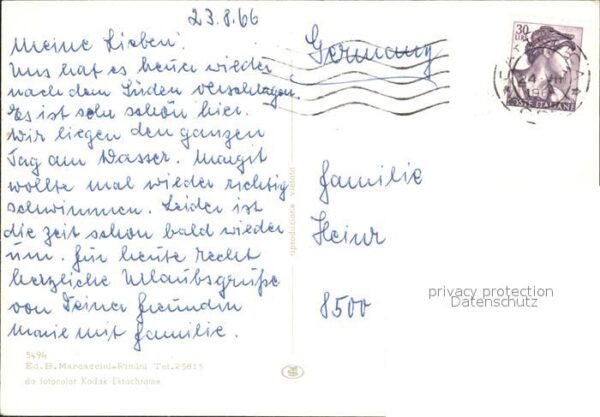 23.8.66
Meine Lieben!
Uns hat es heuer wieder
nach dem Süden verschlagen.
Es ist sehr schön hier.
Wir liegen den ganzen
Tag am Wasser. Margit
wollte mal wieder richtig
schwimmen. Leider ist
die Zeit schon bald wieder
um. Für heute recht
herzliche Urlaubsgrüße
von Deiner Freundin
Marie mit Familie.
5494
Ed. B. Marcaccini-Rimini Tel. 25815
da fotocolor Kodak Ektachrome
riproduzione vietata
Germany
30
LIRE
POSTE ITALIANE
Familie
Heinr
8500
privacy protection
Datenschutz